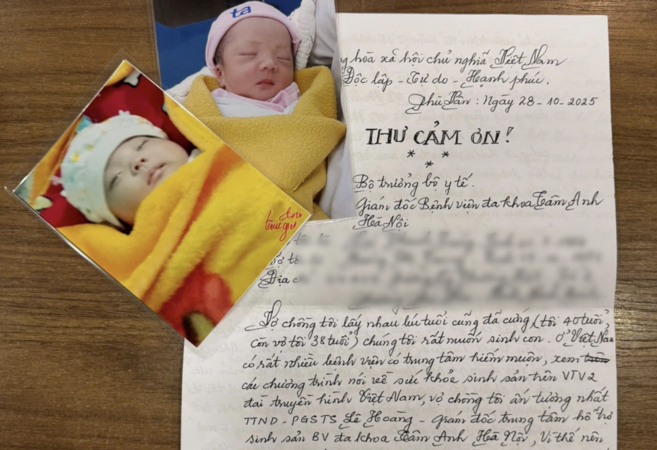 ta
hòa xã hội chủ nghĩa Việt Nam
Độc lập - Tự do - Hạnh phúc.
Phú Tân: Ngày 28-10-2025
THƯ CẢM ƠN!
* * *
Bộ trưởng bộ y tế.
Giám đốc Bệnh viện đa khoa Tâm Anh
Hà Nội
Địa c
Vợ chồng tôi lấy nhau lúc tuổi cũng đã cứng (tôi 40 tuổi,
còn vợ tôi 38 tuổi) chúng tôi rất muốn sinh con. Ở Việt Na
có rất nhiều bệnh viện có trung tâm hiếm muộn, xem
các chương trình nói về sức khỏe sinh sản trên VTV2
đài truyền hình Việt Nam, vợ chồng tôi ấn tượng nhất
TTND - PGSTS Lê Hoàng - Giám đốc trung tâm hỗ trợ
sinh sản BV đa khoa Tâm Anh Hà Nội, Vì thế nên